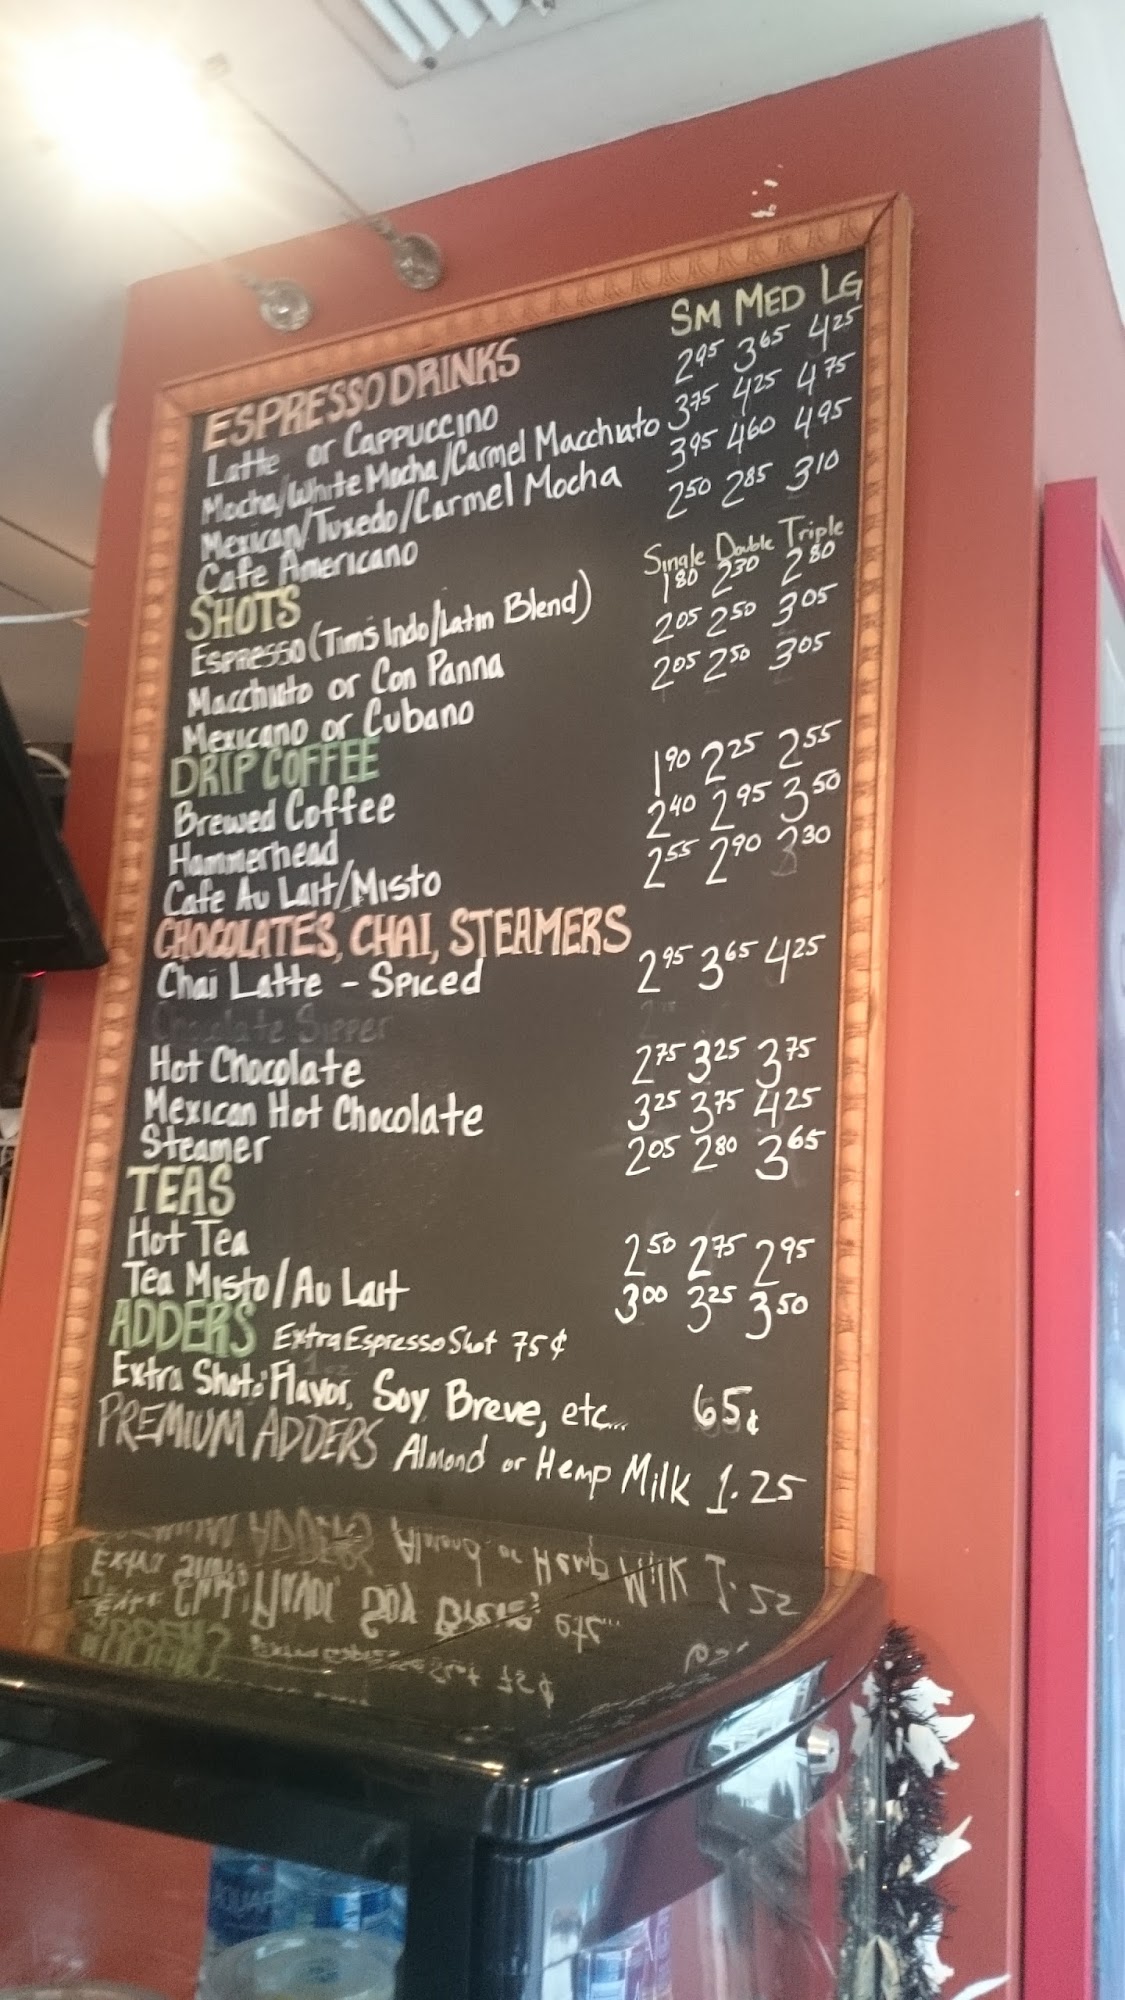 SM MED LG
ESPRESSO DRINKS
Latte or Cappuccino 2.95 3.65 4.25
Mocha/White Mocha/Carmel Macchiato 3.75 4.25 4.75
Mexican/Tuxedo/Carmel Mocha 3.95 4.60 4.95
Cafe Americano 2.50 2.85 3.10
SHOTS Single Double Triple
Espresso (Tim's Indo/Latin Blend) 1.80 2.30 2.80
Macchiato or Con Panna 2.05 2.50 3.05
Mexicano or Cubano 2.05 2.50 3.05
DRIP COFFEE
Brewed Coffee 1.90 2.25 2.55
Hammerhead 2.40 2.95 3.50
Cafe Au Lait/Misto 2.55 2.90 3.30
CHOCOLATES, CHAI, STEAMERS
Chai Latte - Spiced 2.95 3.65 4.25
Chocolate Sipper
Hot Chocolate 2.75 3.25 3.75
Mexican Hot Chocolate 3.25 3.75 4.25
Steamer 2.05 2.80 3.65
TEAS
Hot Tea 2.50 2.75 2.95
Tea Misto/Au Lait 3.00 3.25 3.50
ADDERS Extra Espresso Shot 75¢
Extra Shot: Flavor, Soy Breve, etc... 65¢
PREMIUM ADDERS Almond or Hemp Milk 1.25